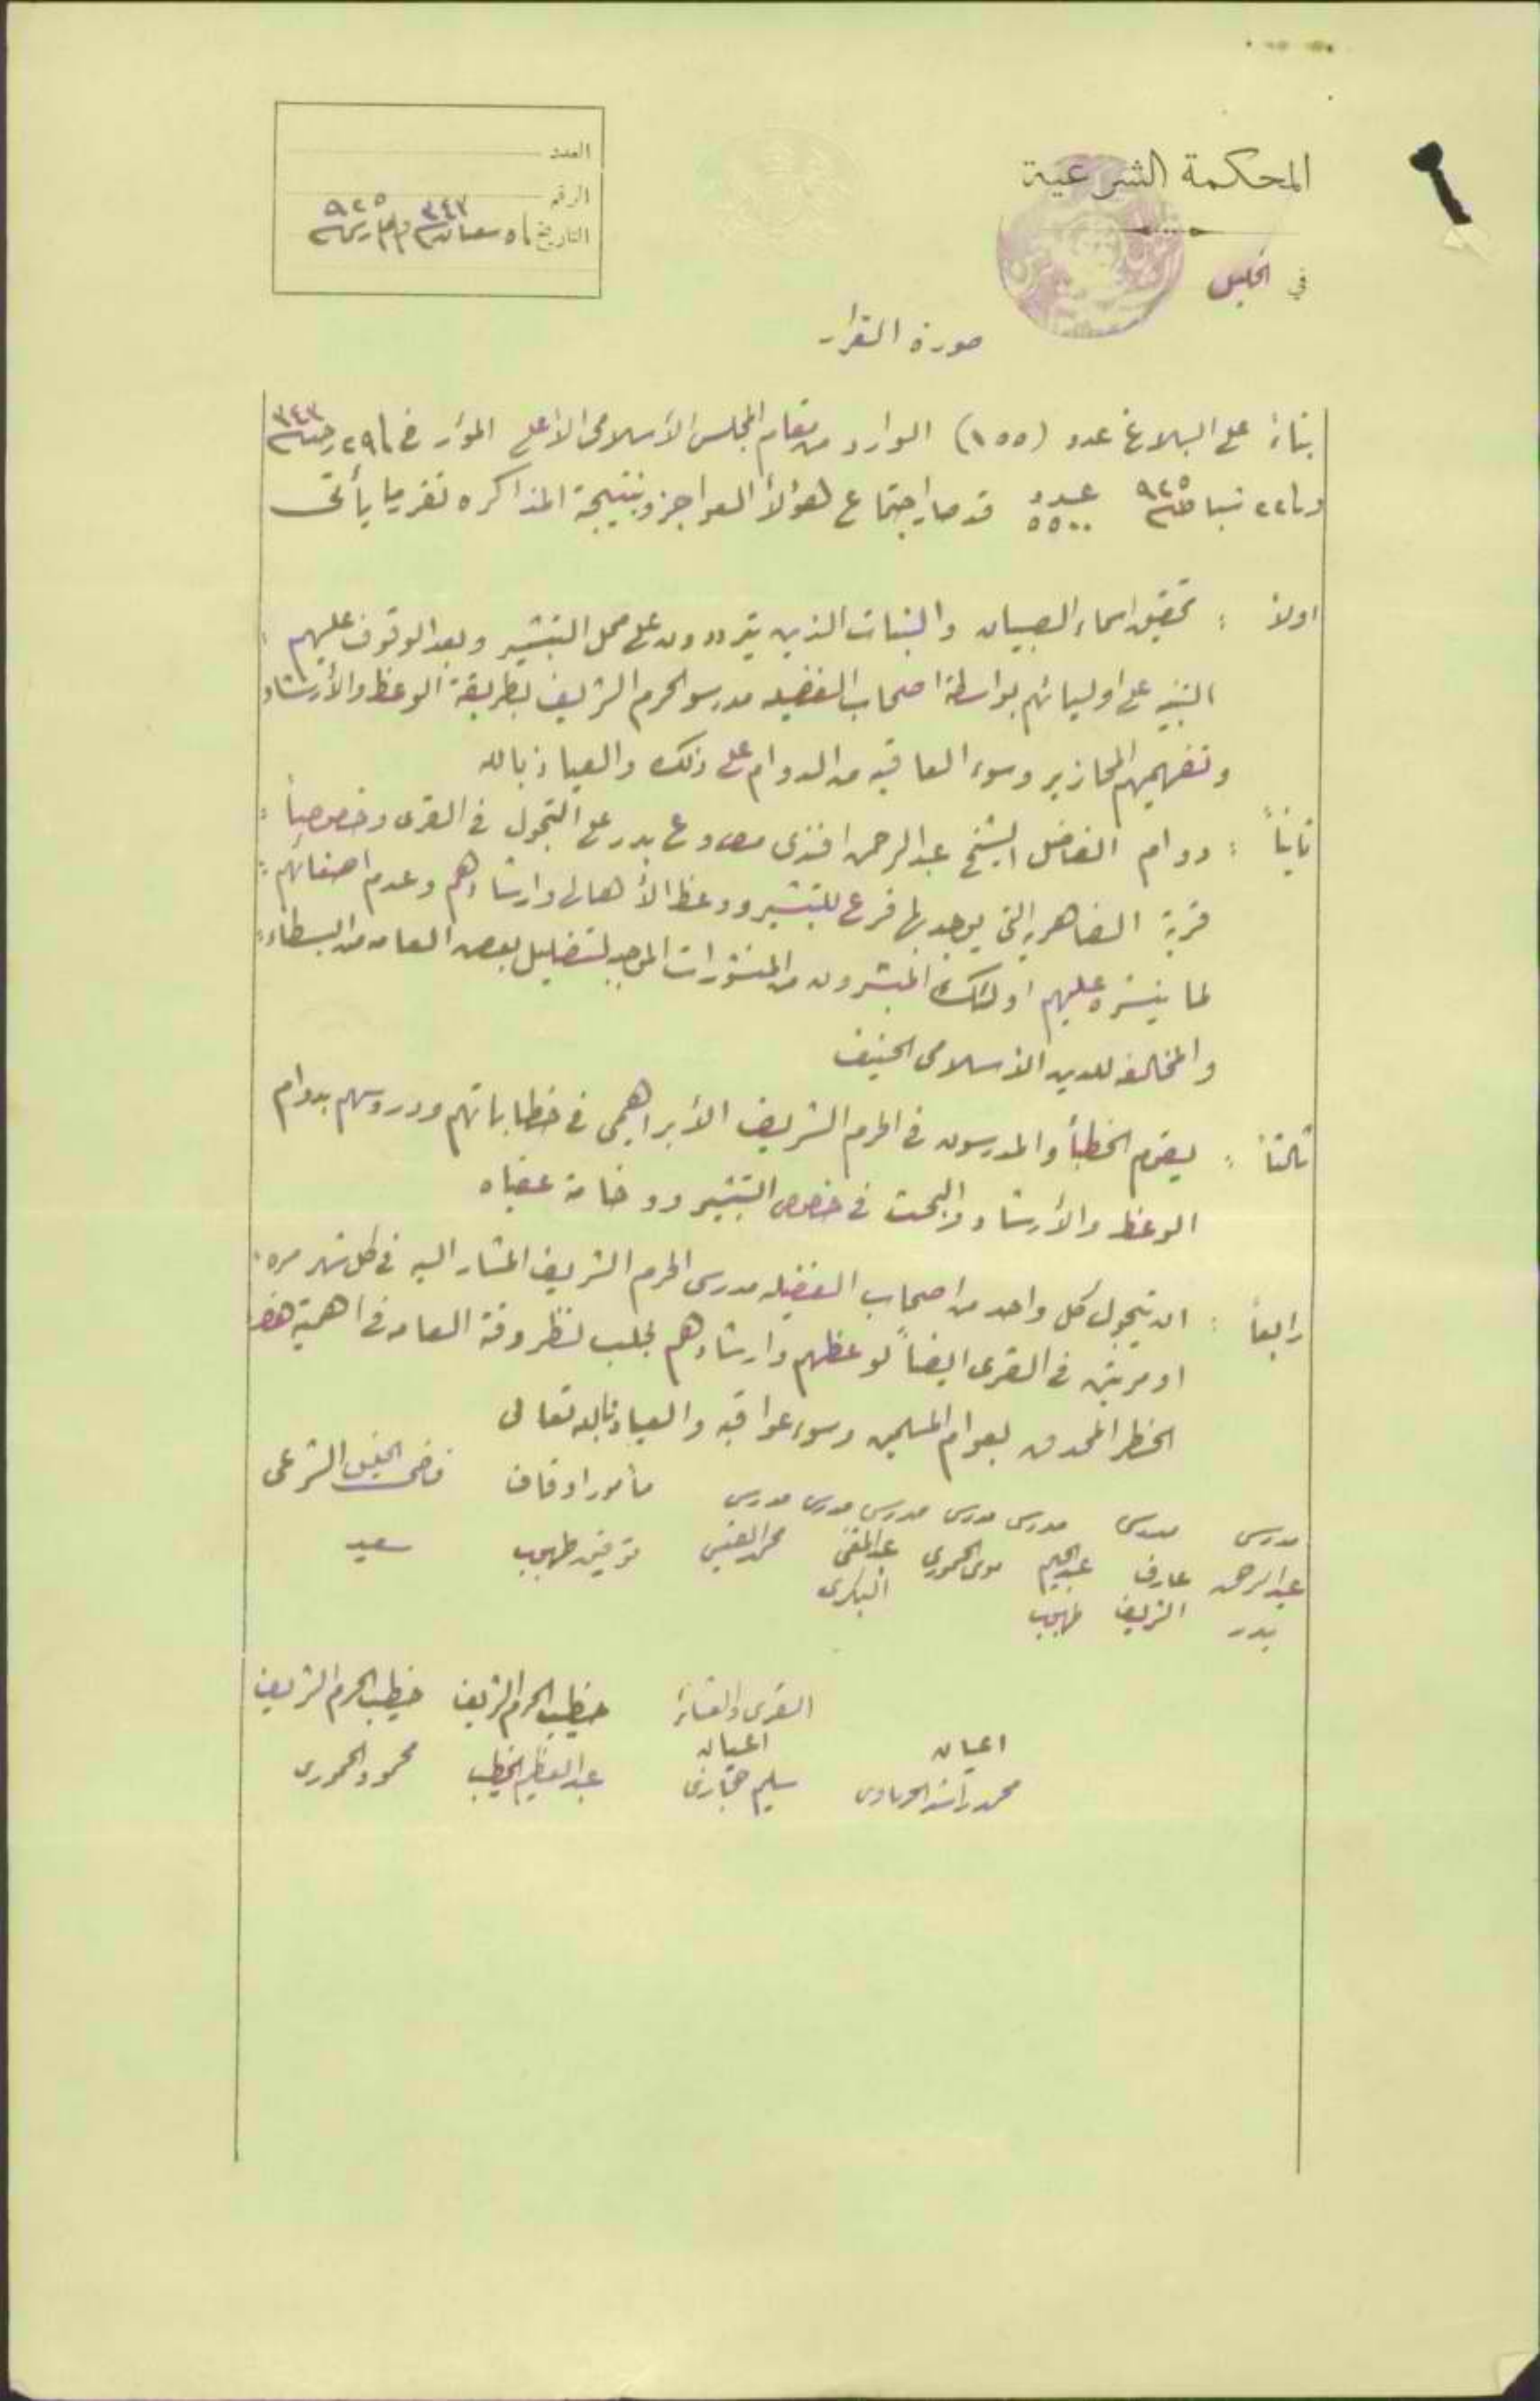 المحكمة الشرعية
في الخليل
العدد
الرقم
التاريخ ٥ شعبان ٣٤٣ و مارس ٩٢٥
صورة القرار
بناءً على البلاغ عدد (١٥٥) الوارد من مقام المجلس الاسلامي الاعلى المؤرخ في ٢٩ رجب ٣٤٣
و ٢٢ شباط ٩٢٥ عدد ٥٥٠٠ قد صار اجتماع هؤلاء وبنتيجة المذاكره تقرر ما يأتي
اولاً : تحقيق اسماء الصبيان والبنات الذين يترددون على محل التبشير وبعد الوقوف عليهم :
التنبيه على اوليائهم بواسطة اصحاب الفضيله مدرسو الحرم الشريف بطريقة الوعظ والأرشاد
وتفهيمهم المحاذير وسوء العاقبه من الدوام على ذلك والعياذ بالله
ثانياً : دوام الفاضل الشيخ عبد الرحمن افندى بدر على التجول في القرى وخصوصاً :
قرية الضاهريه التي يوجد بها فرع للتبشير ووعظ الأهالي وارشادهم وعدم اصغائهم :
لما ينشره عليهم اولئك المبشرون من المنشورات الموجبه لتضليل بعض العامه من البسطاء :
والمخالفه للدين الاسلامي الحنيف
ثالثاً : يقوم الخطبأ والمدرسون في الحرم الشريف الأبراهيمي في خطاباتهم ودروسهم بدوام
الوعظ والأرشاد والبحث في خصوص التبشير ووخامة عقباه
رابعاً : ان يتجول كل واحد من اصحاب الفضيله مدرسي الحرم الشريف المشار اليه في كل شهر مره :
او مرتين في القرى ايضاً لوعظهم وارشادهم لجلب نظر دقة العامه في اهمية هذا
الخطر المحدق بعوام المسلمين وسوء عواقبه والعياذ بالله تعالى
مدرس مدرس مدرس مدرس مدرس مدرس مدرس مأمور اوقاف قاضي الخليل الشرعي
عبد الرحمن عارف عبد الحليم موسى الحموري عبد المغني محمد توفيق طهبوب سعيد
بدر الشريف طهبوب البكري
القرى والعشائر خطيب الحرم الشريف خطيب الحرم الشريف
اعيان اعيان
محمد راشد سليم حجازي عبد العظيم الخطيب محمود الحموري